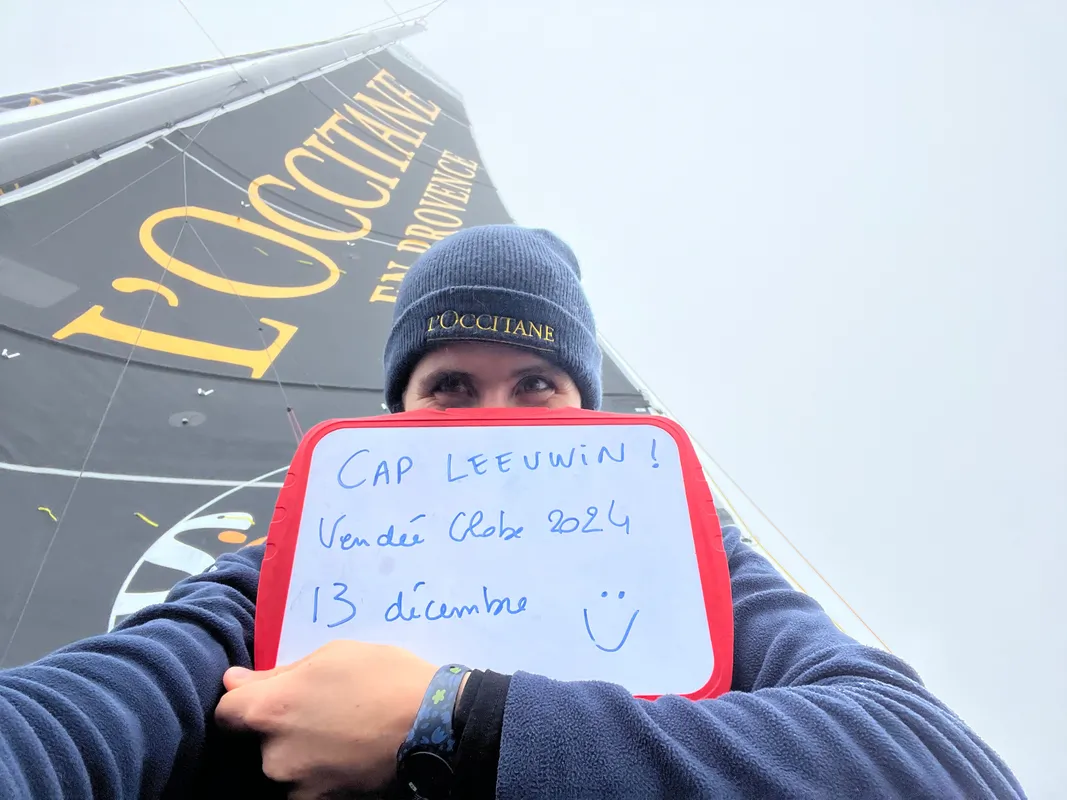 L'OCCITANE
EN PROVENCE
L'OCCITANE
CAP LEEUWIN !
Vendée Globe 2024
13 décembre